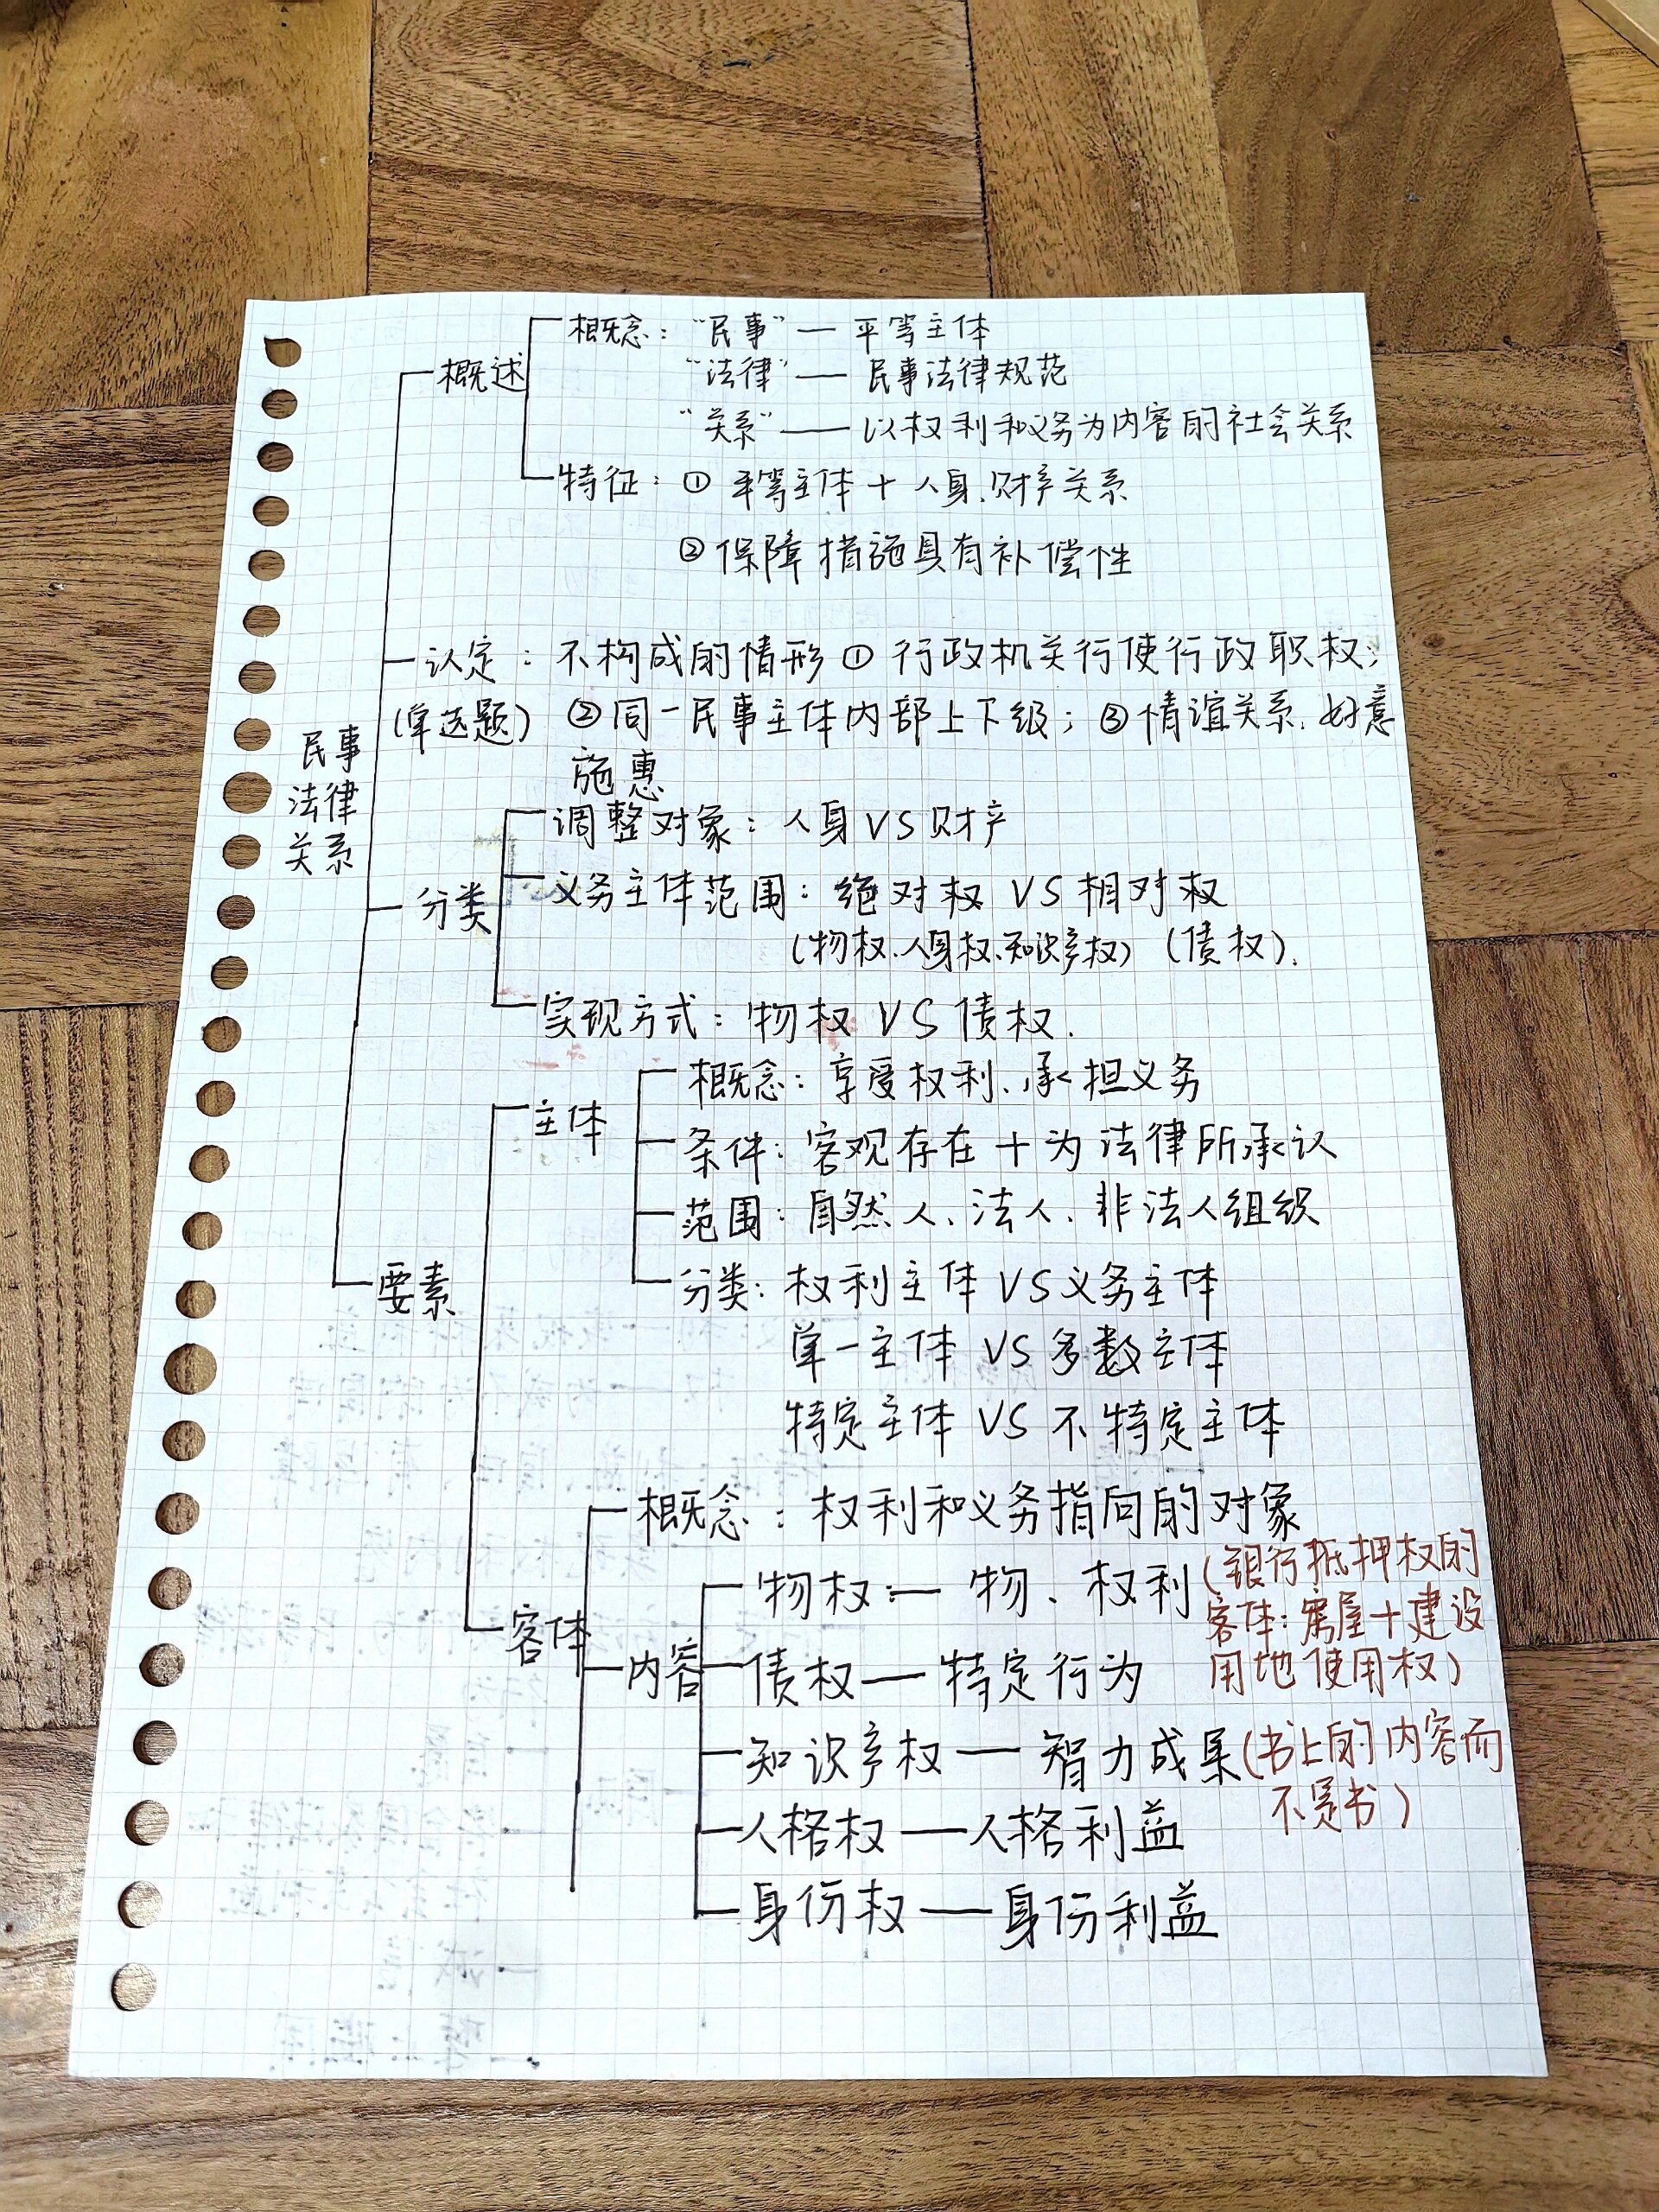 概念："民事"—平等主体
概述
"法律"—民事法律规范
"关系"—以权利和义务为内容的社会关系
特征：① 平等主体+人身、财产关系
② 保障措施具有补偿性
认定：不构成的情形 ① 行政机关行使行政职权；
(单选题) ②同一民事主体内部上下级；③情谊关系、好意
施惠
民事
法律
关系
调整对象：人身VS财产
分类
义务主体范围：绝对权 VS 相对权
(物权、人身权、知识产权) (债权).
实现方式：物权 VS 债权.
概念：享受权利、承担义务
主体
条件：客观存在+为法律所承认
范围：自然人、法人、非法人组织
要素
分类：权利主体 VS 义务主体
单一主体 VS 多数主体
特定主体 VS 不特定主体
概念：权利和义务指向的对象
物权：—物、权利(银行抵押权的
客体：房屋+建设
用地使用权)
客体
内容
债权—特定行为
知识产权—智力成果(书上的内容而
不是书)
人格权—人格利益
身份权—身份利益